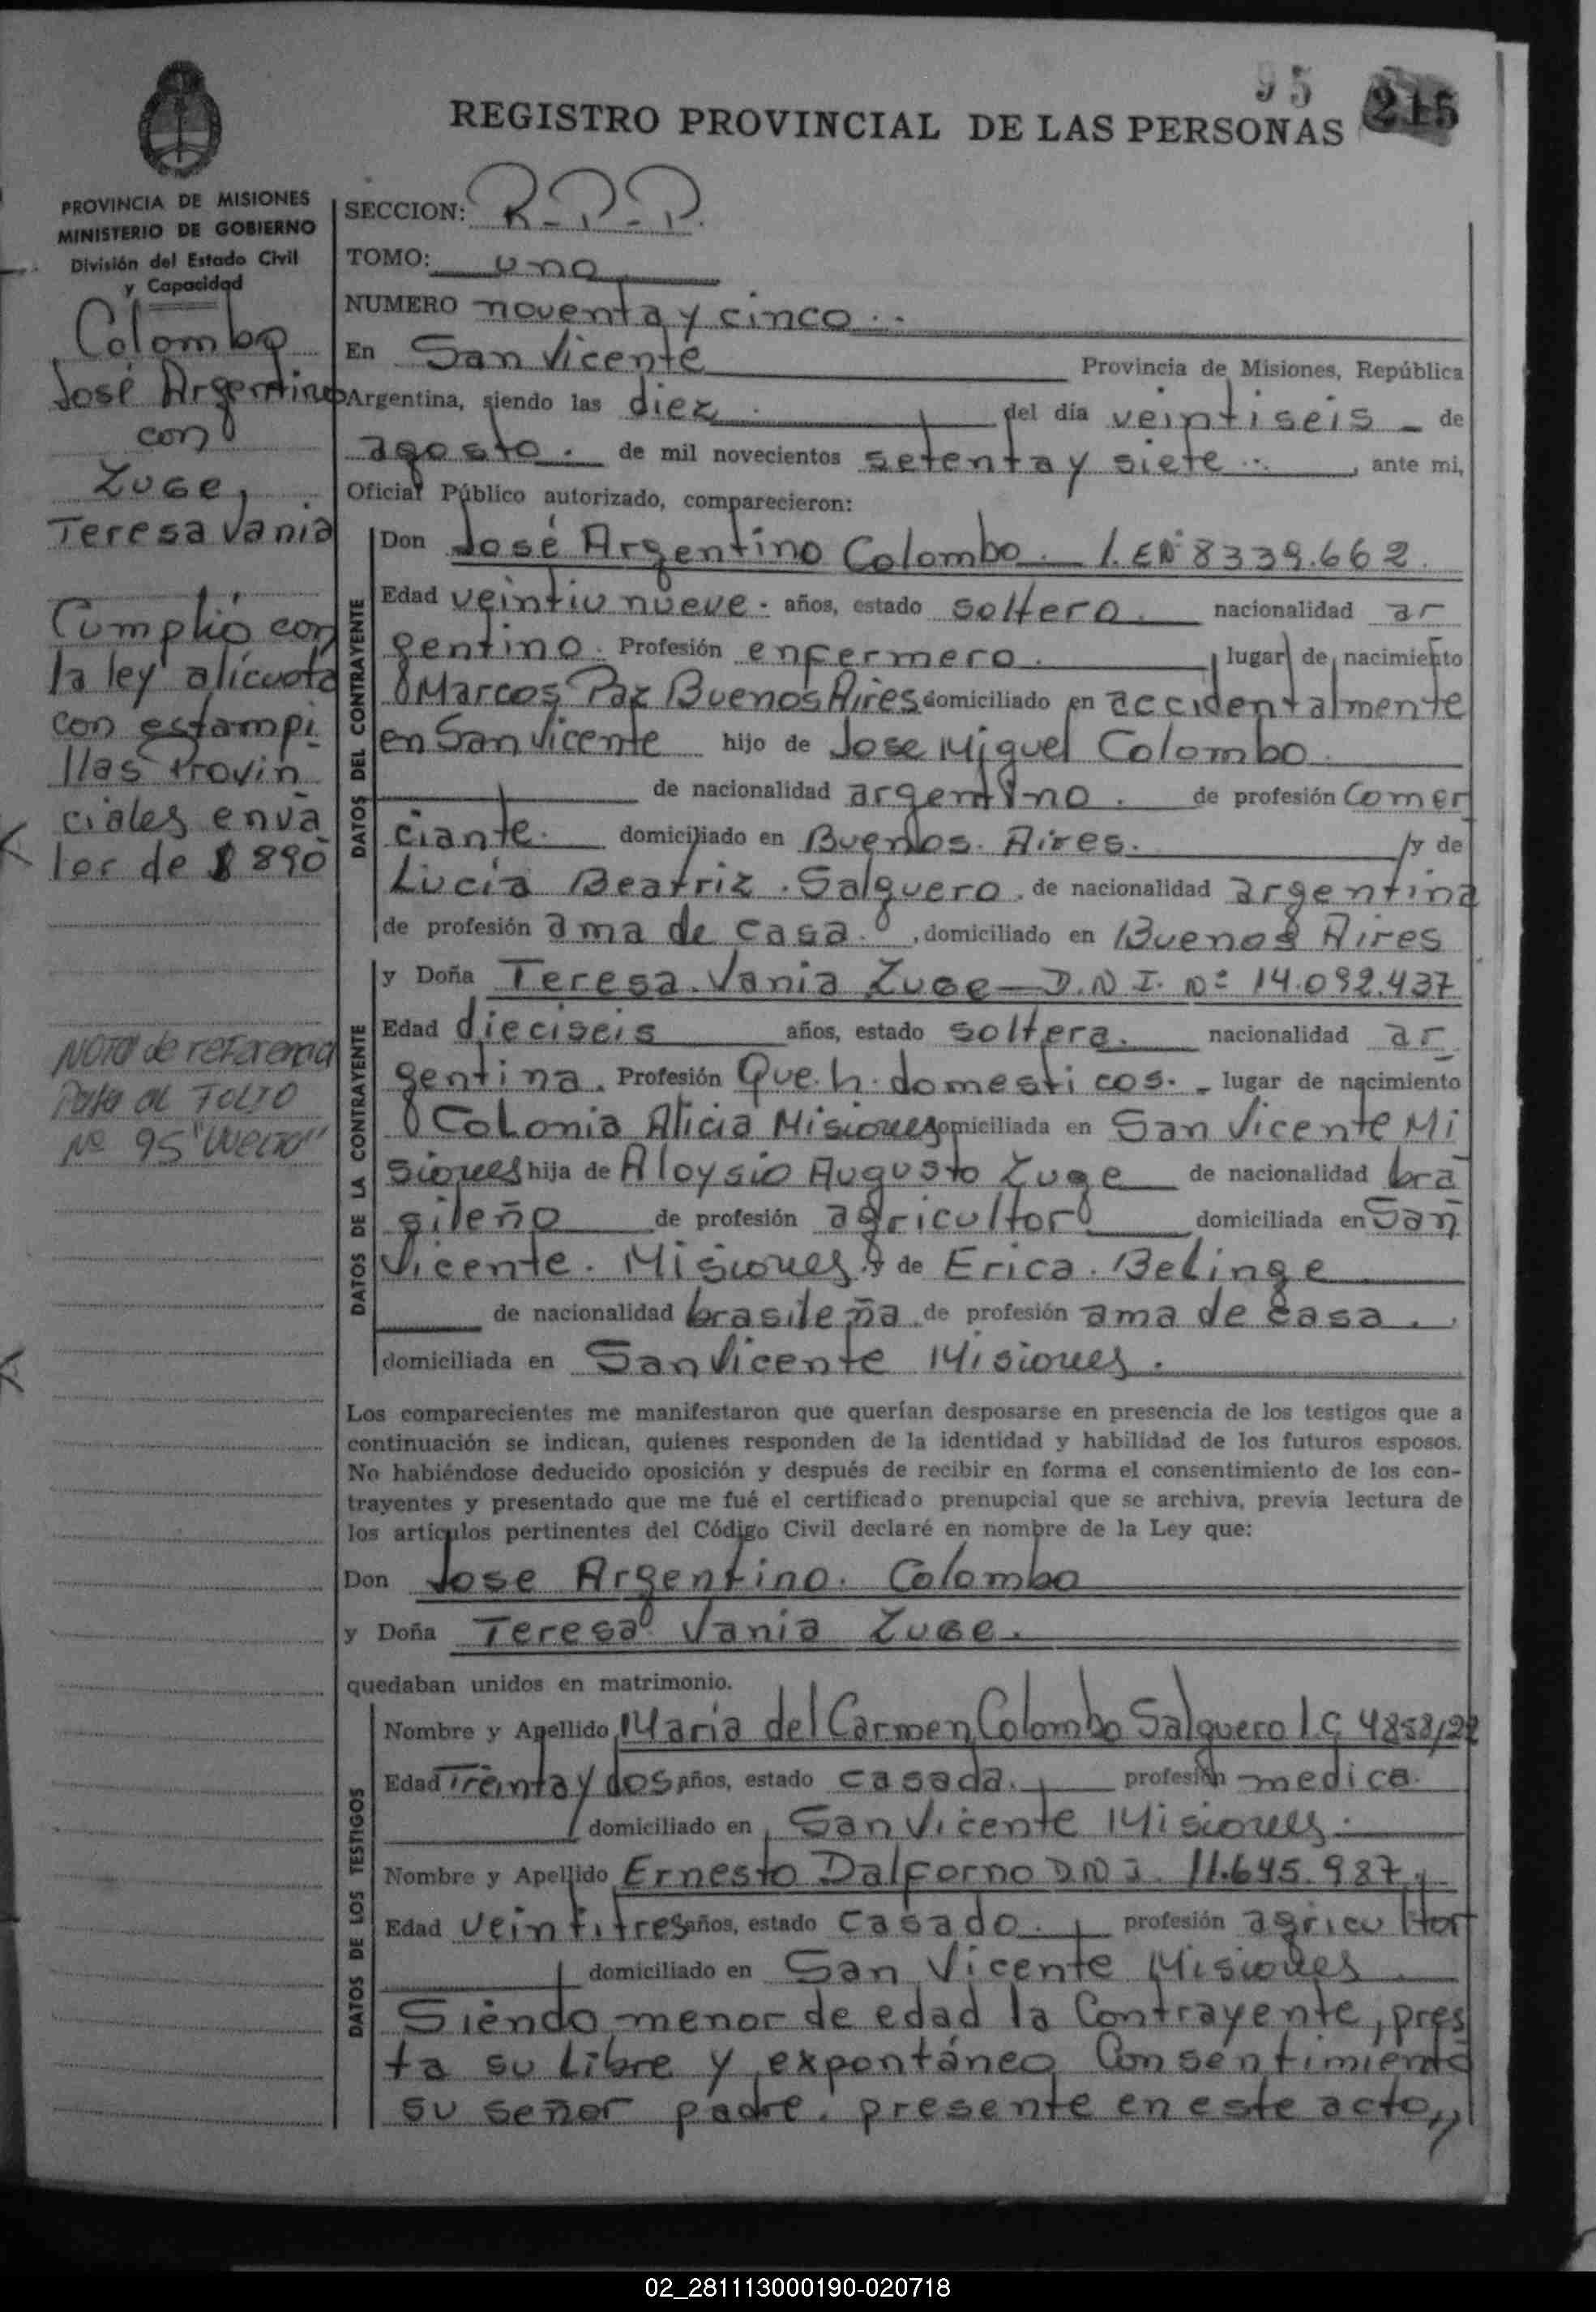 95 215
REGISTRO PROVINCIAL DE LAS PERSONAS
PROVINCIA DE MISIONES
MINISTERIO DE GOBIERNO
División del Estado Civil
y Capacidad
Colombo
José Argentino
con
Zuge,
Teresa Vania
Cumplió con
la ley alícuota
con estampi
llas Provin
ciales en va
lor de $ 890
Nota de referencia
Pasa al Folio
Nº 95 "Vuelto"
SECCION: R.P.P.
TOMO: uno
NUMERO noventa y cinco..
En San Vicente Provincia de Misiones, República
Argentina, siendo las diez. del día veintiseis de
agosto. de mil novecientos setenta y siete.., ante mi,
Oficial Público autorizado, comparecieron:
DATOS DEL CONTRAYENTE
Don José Argentino Colombo. L.E Nº 8339.662.
Edad veintiu nueve. años, estado soltero. nacionalidad ar
gentino. Profesión enfermero., lugar de nacimiento
Marcos Paz Buenos Aires domiciliado en accidentalmente
en San Vicente hijo de Jose Miguel Colombo.
de nacionalidad argentino. de profesión Comer
ciante. domiciliado en Buenos. Aires. y de
Lucía Beatriz. Salguero. de nacionalidad argentina
de profesión ama de casa., domiciliado en Buenos Aires
DATOS DE LA CONTRAYENTE
y Doña Teresa. Vania Zuge—D.N.I. Nº 14.092.437
Edad dieciseis años, estado soltera. nacionalidad ar
gentina. Profesión Que.h.domesticos.- lugar de nacimiento
Colonia Alicia Misiones domiciliada en San Vicente Mi
siones hija de Aloysio Augusto Zuge de nacionalidad bra
sileño de profesión agricultor domiciliada en San
Vicente. Misiones. y de Erica. Belinge
de nacionalidad brasileña. de profesión ama de casa.
domiciliada en San Vicente Misiones.
Los comparecientes me manifestaron que querían desposarse en presencia de los testigos que a
continuación se indican, quienes responden de la identidad y habilidad de los futuros esposos.
No habiéndose deducido oposición y después de recibir en forma el consentimiento de los con-
trayentes y presentado que me fué el certificado prenupcial que se archiva, previa lectura de
los artículos pertinentes del Código Civil declaré en nombre de la Ley que:
Don Jose Argentino. Colombo
y Doña Teresa Vania Zuge.
quedaban unidos en matrimonio.
DATOS DE LOS TESTIGOS
Nombre y Apellido Maria del Carmen Colombo Salguero L.C
Edad Treinta y dos años, estado casada. profesión medica.
domiciliado en San Vicente Misiones.
Nombre y Apellido Ernesto Dalforno D.N.I. 11.645.987.
Edad veintitres años, estado casado. profesión agricultor
domiciliado en San Vicente Misiones.
Siendo menor de edad la Contrayente, pres
ta su Libre y expontáneo Consentimiento
su señor padre. presente en este acto,,
02_281113000190-020718